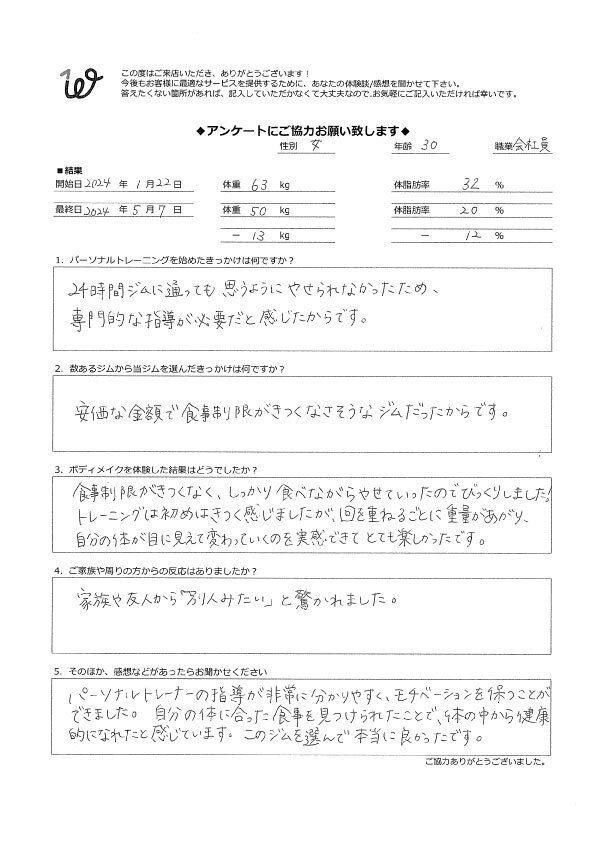 この度はご来店いただき、ありがとうございます！
今後もお客様に最適なサービスを提供するために、あなたの体験談/感想を聞かせて下さい。
答えたくない箇所があれば、記入していただかなくて大丈夫なので、お気軽にご記入いただければ幸いです。
◆アンケートにご協力お願い致します◆
性別 女 年齢 30 職業 会社員
■結果
開始日 2024 年 1 月 22 日 体重 63 kg 体脂肪率 32 %
最終日 2024 年 5 月 7 日 体重 50 kg 体脂肪率 20 %
－ 13 kg － 12 %
1．パーソナルトレーニングを始めたきっかけは何ですか？
24時間ジムに通っても思うようにやせられなかったため、
専門的な指導が必要だと感じたからです。
2．数あるジムから当ジムを選んだきっかけは何ですか？
安価な金額で食事制限がきつくなさそうなジムだったからです。
3．ボディメイクを体験した結果はどうでしたか？
食事制限がきつくなく、しっかり食べながらやせていったのでびっくりしました！
トレーニングは初めはきつく感じましたが、回を重ねるごとに重量があがり、
自分の体が目に見えて変わっていくのを実感できてとても楽しかったです。
4．ご家族や周りの方からの反応はありましたか？
家族や友人から「別人みたい」と驚かれました。
5．そのほか、感想などがあったらお聞かせください
パーソナルトレーナーの指導が非常に分かりやすく、モチベーションを保つことが
できました。自分の体に合った食事を見つけられたことで、体の中から健康
的になれたと感じています。このジムを選んで本当に良かったです。
ご協力ありがとうございました。